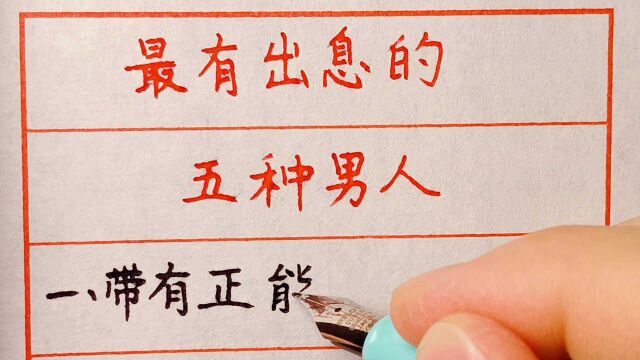 最有出息的
五种男人
一、带有正能